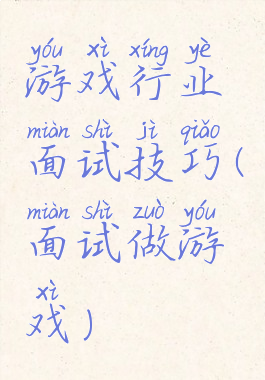 yóu xì xíng yè
游戏行业
miàn shì jì qiǎo
面试技巧(
miàn shì zuò yóu
面试做游
xì
戏)